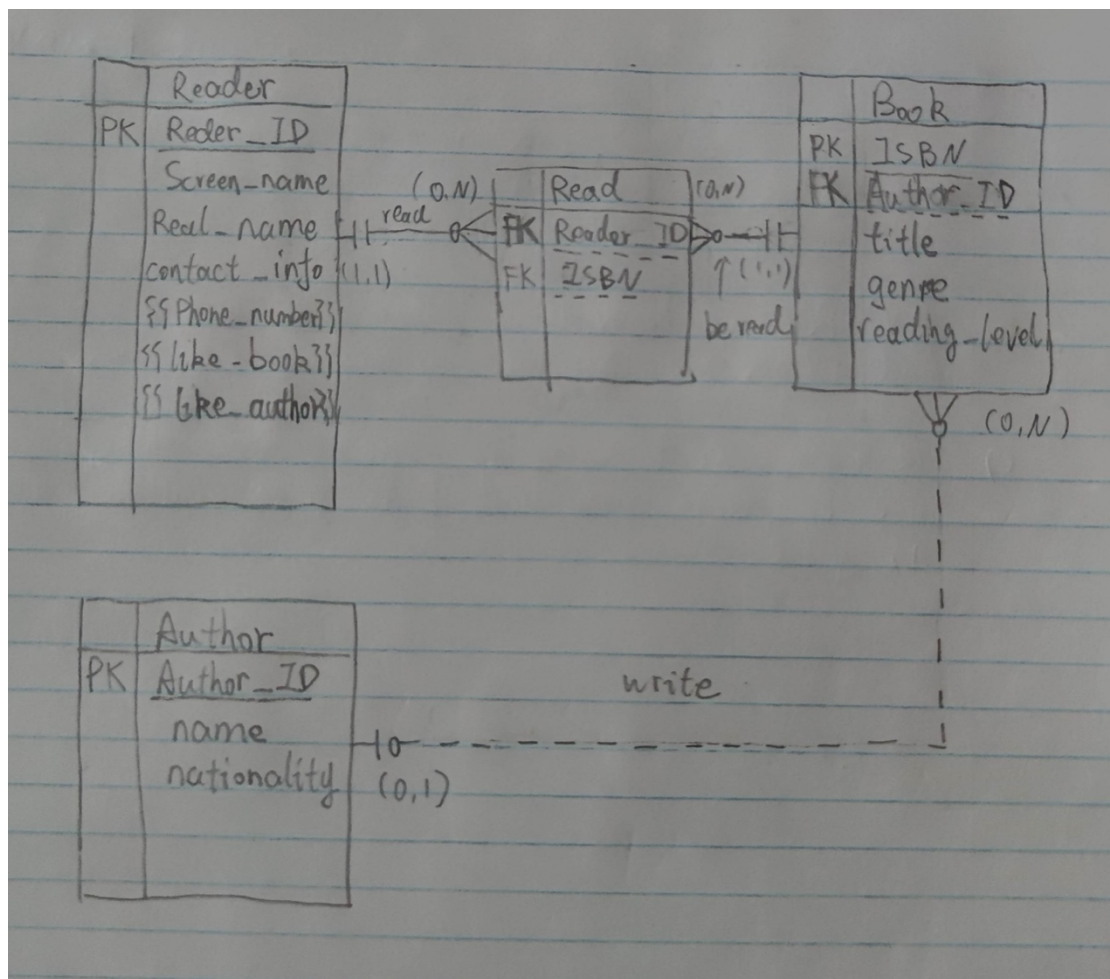 Reader
PK Reder_ID
Screen_name
Real_name
contact_info
{{Phone_number}}
{{like-book}}
{{like_author}}
(1,1)
read
(0,N)
Read
FK Reader_ID
FK ISBN
(0,N)
(1,1)
be read
Book
PK ISBN
FK Author_ID
title
genre
reading_level
(0,N)
Author
PK Author_ID
name
nationality
(0,1)
write